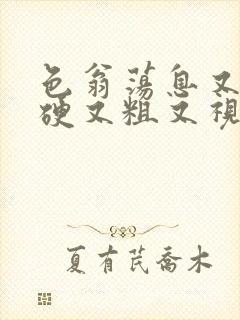 色翁荡息又
硬又粗又视
夏有芪乔木